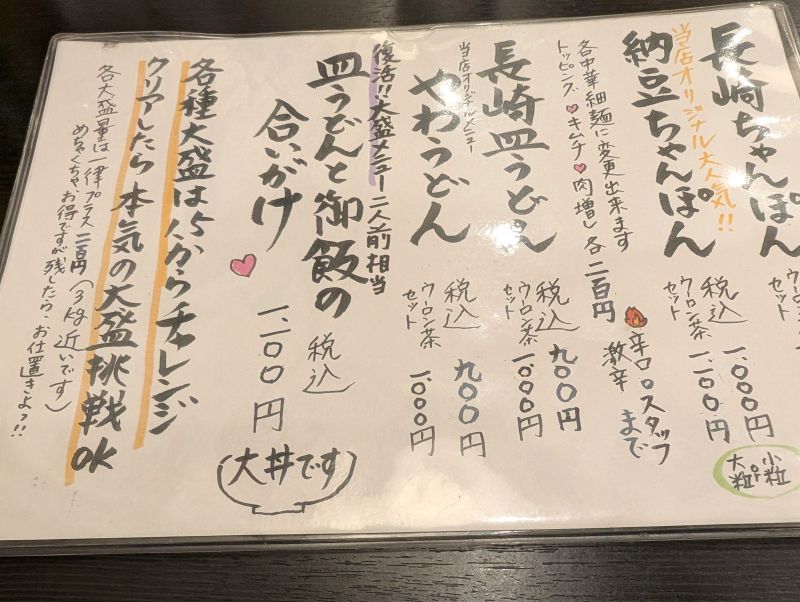 長崎ちゃんぽん
当店オリジナル大人気!!
納豆ちゃんぽん
税込 一、000円
ウーロン茶セット 一、一00円
小粒 or 大粒
各中華細麺に変更出来ます
トッピング♥キムチ♥肉増し各二百円
辛口。スタッフ
激辛 まで
長崎皿うどん
税込 九00円
ウーロン茶セット 一、000円
当店オリジナルメニュー
やわうどん
税込 九00円
ウーロン茶セット 一、000円
復活!!大盛メニュー二人前相当
皿うどんと御飯の
合いがけ
税込
一、一00円
(大丼です)
各種大盛は1.5からチャレンジ
クリアしたら本気の大盛挑戦OK
各大盛量は一律プラス二百円(3kg近いです)
めちゃくちゃ、お得ですが残したら、お仕置きよっ!!